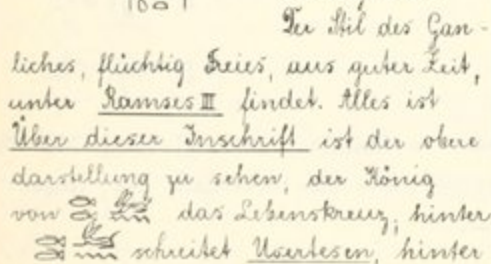 Der Stil des Gan-
liches, flüchtig Freies, aus guter Zeit,
unter Ramses III findet. Alles ist
Über dieser Inschrift ist der obere
darstellung zu sehen, der König
von das Lebenskreuz, hinter
schreitet Usertesen, hinter